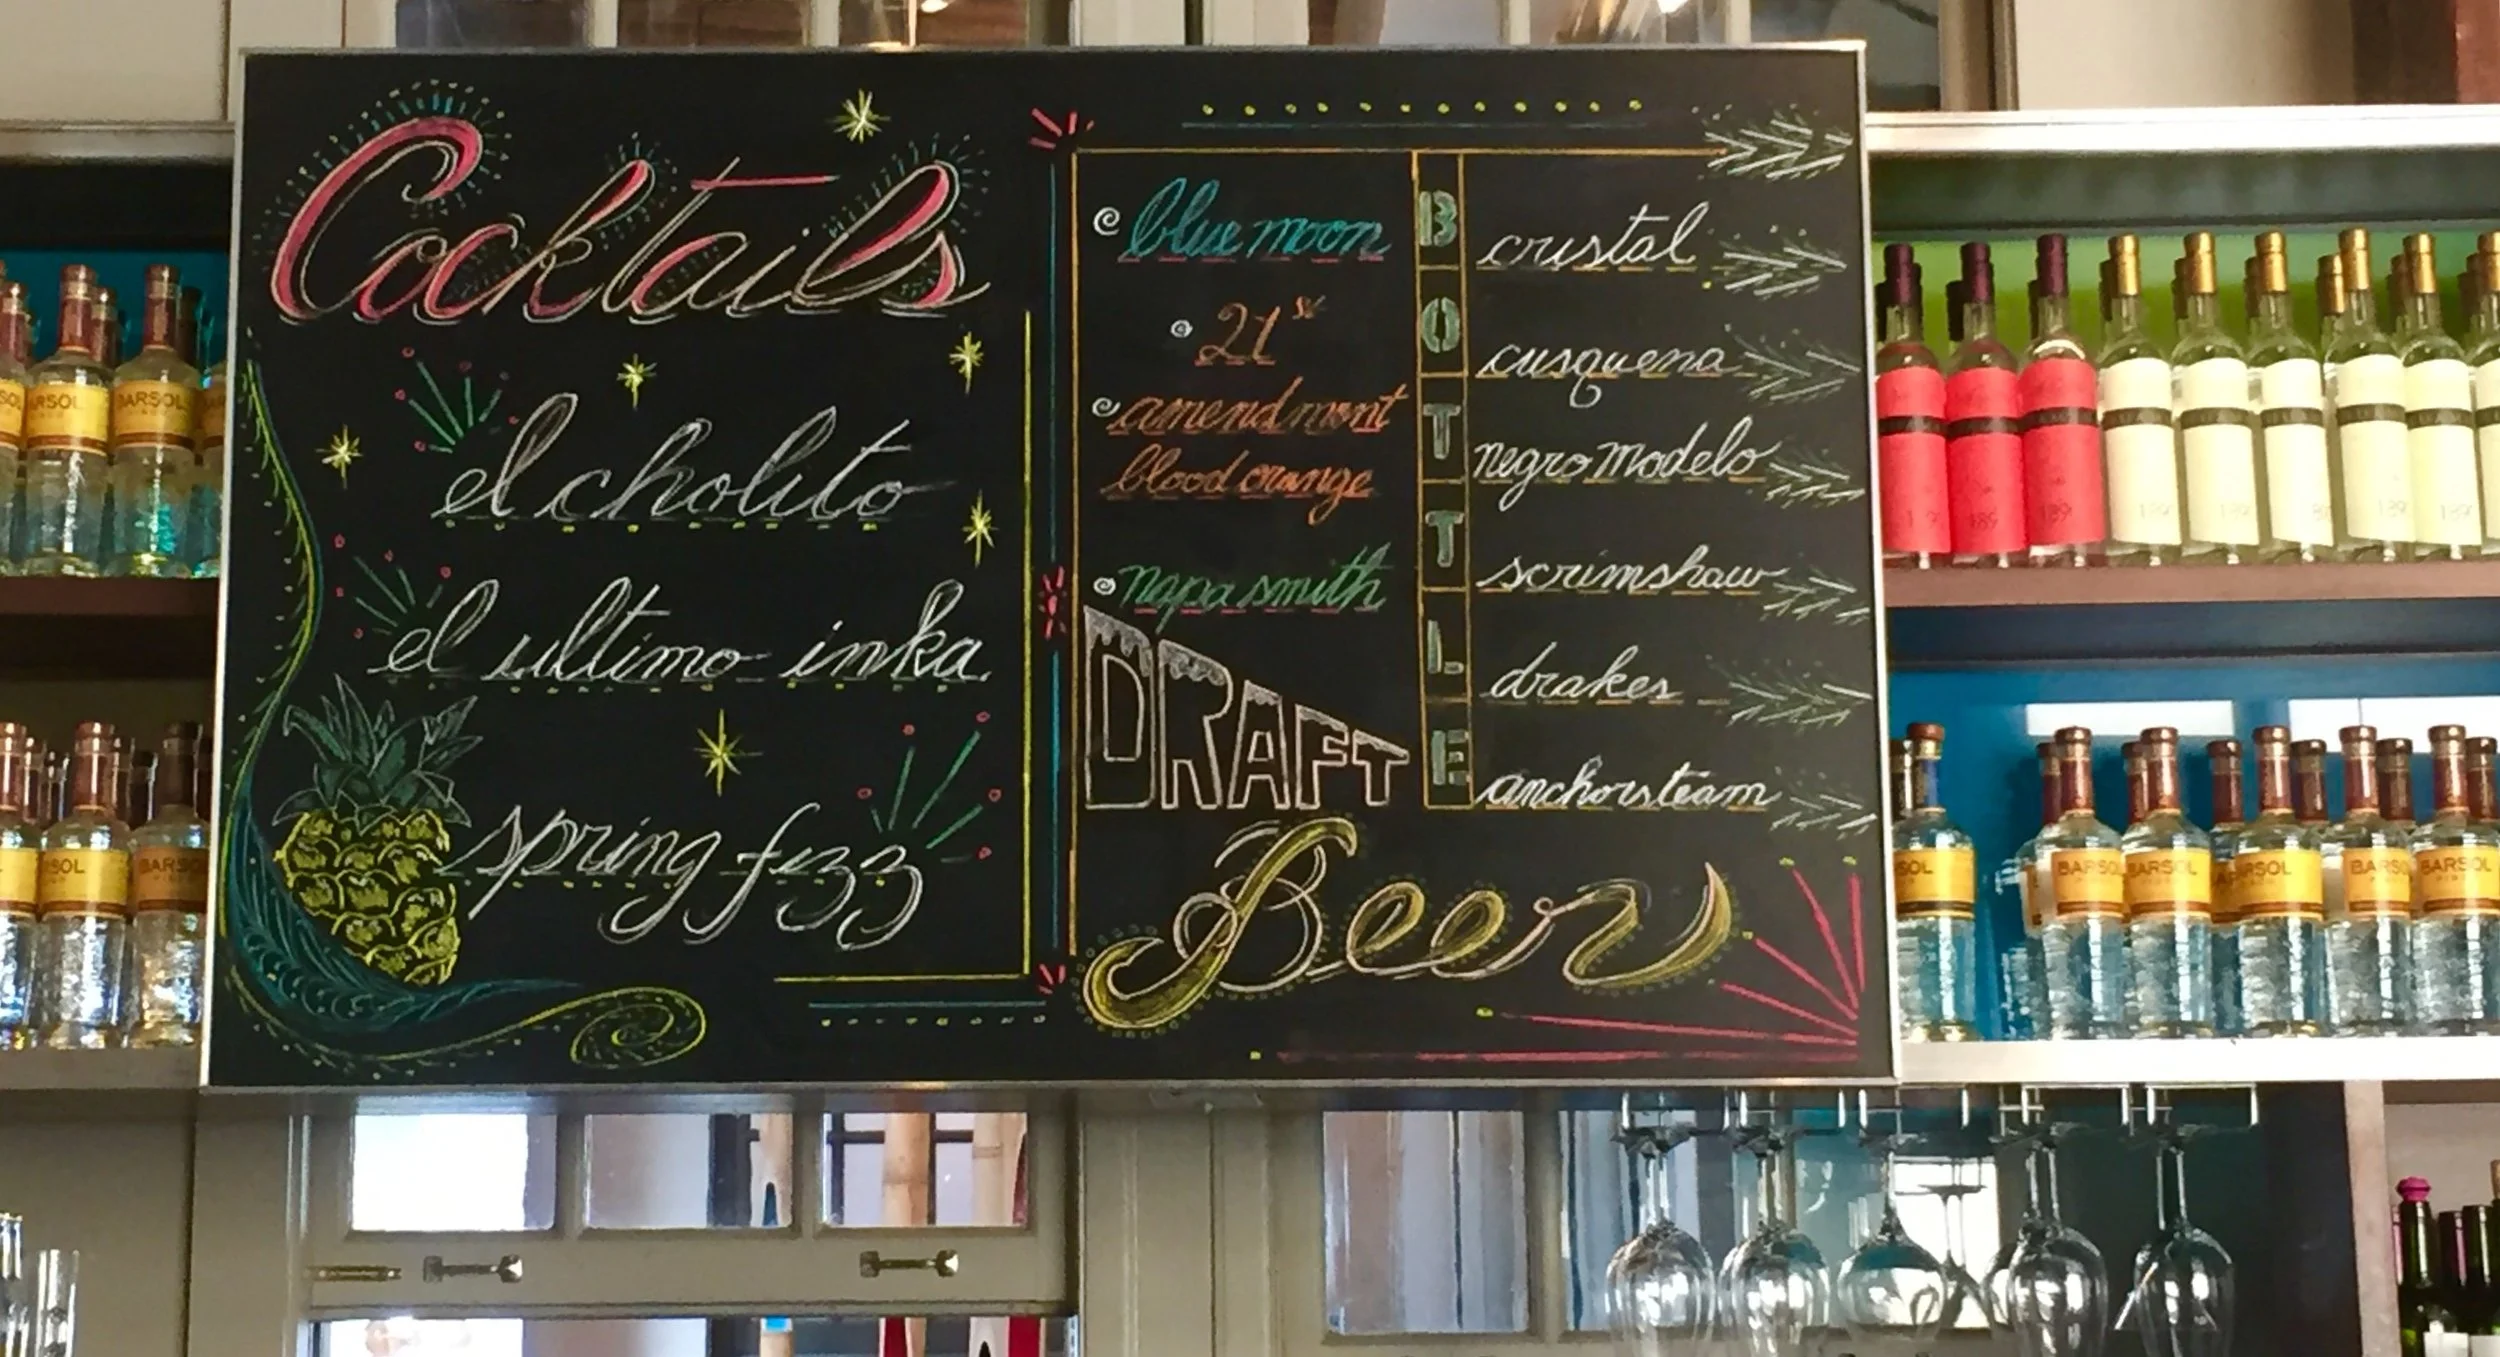 Cocktails
el cholito
el ultimo inka
spring fizz
blue moon
21st
amendment
blood orange
napa smith
DRAFT
BOTTLE
cristal
cusquena
negro modelo
scrimshaw
drakes
anchorsteam
Beers
BARSOL
BARSOL
BARSOL
BARSOL
BARSOL
BARSOL
BARSOL
BARSOL